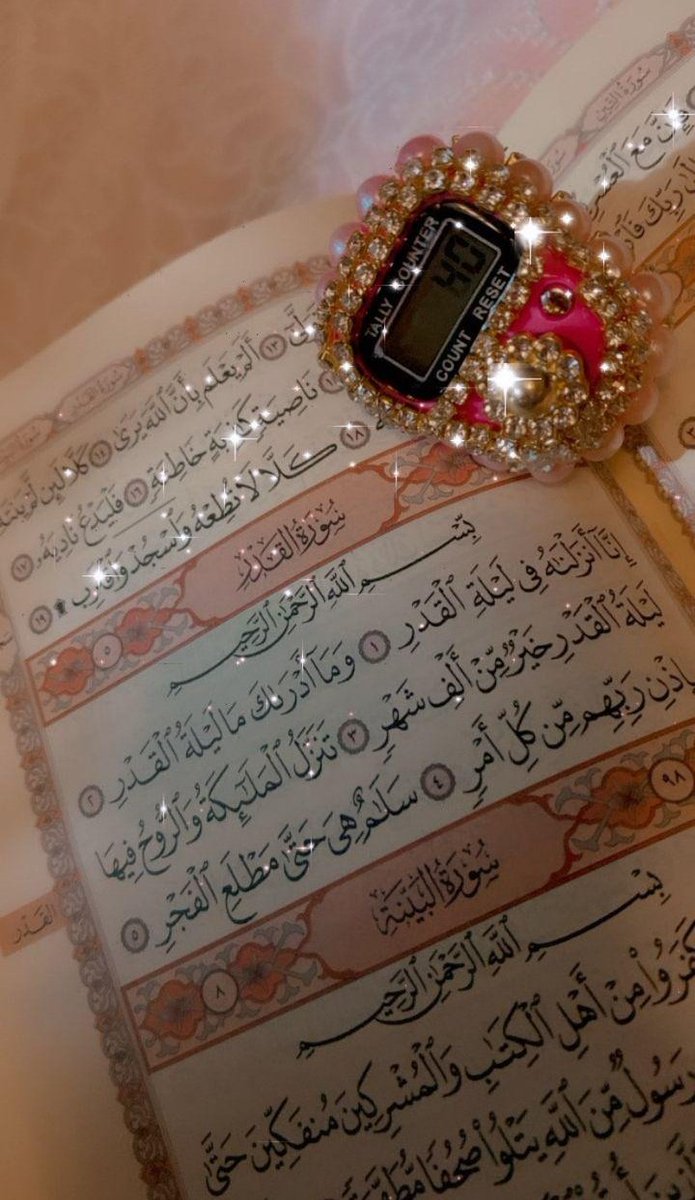 سُورَةُ التِّينِ
فَإِنَّ مَعَ الْعُسْرِ
TALLY COUNTER
40
COUNT RESET
سُورَةُ القَدْرِ
١٣ أَلَمْ يَعْلَم بِأَنَّ ٱللَّهَ يَرَىٰ ١٤ كَلَّا لَئِن لَّمْ يَنتَهِ
نَاصِيَةٍ كَٰذِبَةٍ خَاطِئَةٍ ١٦ فَلْيَدْعُ نَادِيَهُۥ ١٧
١٨ كَلَّا لَا تُطِعْهُ وَٱسْجُدْ وَٱقْتَرِب ۩ ١٩
سُورَةُ القَدْرِ ٥
بِسْمِ ٱللَّهِ ٱلرَّحْمَٰنِ ٱلرَّحِيمِ
إِنَّآ أَنزَلْنَٰهُ فِى لَيْلَةِ ٱلْقَدْرِ ١ وَمَآ أَدْرَىٰكَ مَا لَيْلَةُ ٱلْقَدْرِ ٢
لَيْلَةُ ٱلْقَدْرِ خَيْرٌ مِّنْ أَلْفِ شَهْرٍ ٣ تَنَزَّلُ ٱلْمَلَٰٓئِكَةُ وَٱلرُّوحُ فِيهَا
بِإِذْنِ رَبِّهِم مِّن كُلِّ أَمْرٍ ٤ سَلَٰمٌ هِىَ حَتَّىٰ مَطْلَعِ ٱلْفَجْرِ ٥
٩٨ سُورَةُ البَيِّنَةِ ٨
بِسْمِ ٱللَّهِ ٱلرَّحْمَٰنِ ٱلرَّحِيمِ
كَفَرُوا۟ مِنْ أَهْلِ ٱلْكِتَٰبِ وَٱلْمُشْرِكِينَ مُنفَكِّينَ حَتَّىٰ
رَسُولٌ مِّنَ ٱللَّهِ يَتْلُوا۟ صُحُفًا مُّطَهَّرَةً
القَدْر